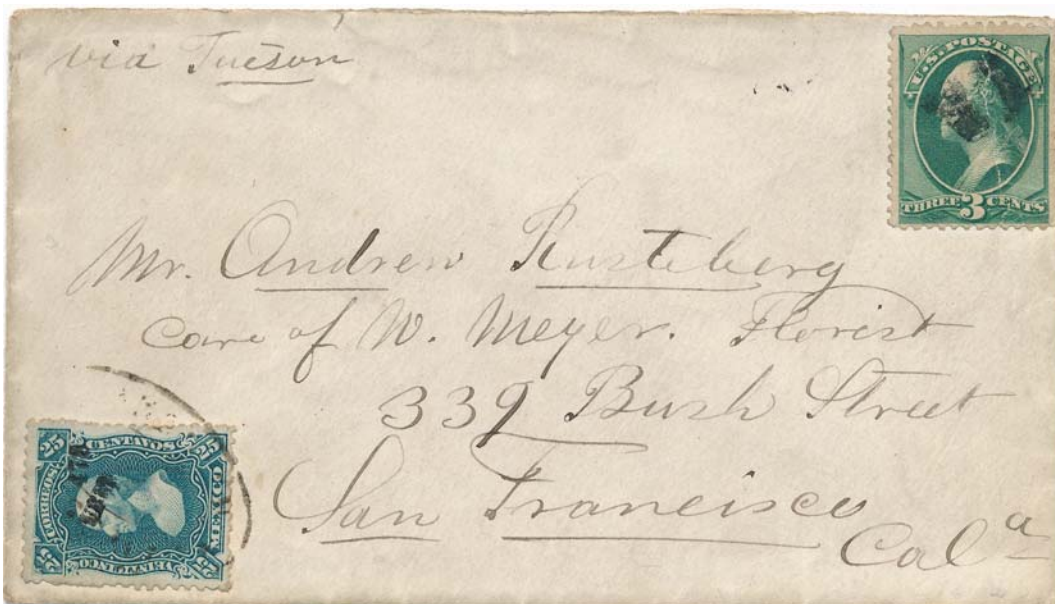 via Tucson
U.S. POSTAGE
THREE 3 CENTS
Mr. Andrew Rusteberg
care of W. Meyer. Florist
339 Bush Street
San Francisco
Cal a
25 CENTAVOS 25
CORREOS MEXICO
25 VEINTICINCO 25